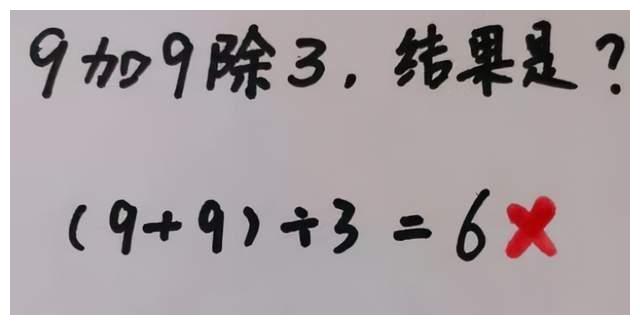 9加9除3，结果是？
(9+9)÷3=6✗